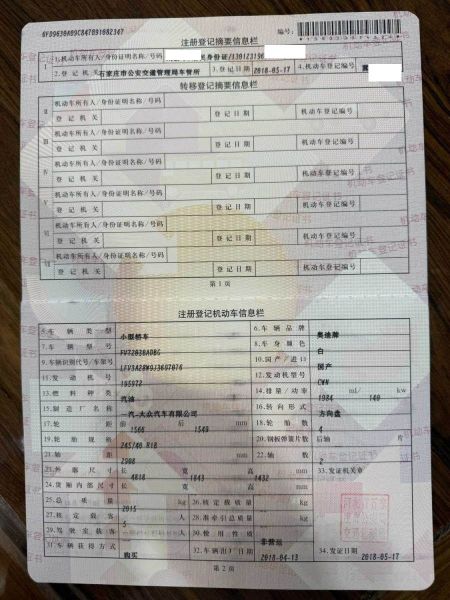 注册登记摘要信息栏
编号:
1.机动车所有人/身份证明名称/号码 居民身份证/130123196
2.登记机关 石家庄市公安交通管理局车管所 3.登记日期 2018-05-17 4.机动车登记编号
转移登记摘要信息栏
Ⅱ 机动车所有人/身份证明名称/号码
登记机关 登记日期 机动车登记编号
Ⅲ 机动车所有人/身份证明名称/号码
登记机关 登记日期 机动车登记编号
Ⅳ 机动车所有人/身份证明名称/号码
登记机关 登记日期 机动车登记编号
Ⅴ 机动车所有人/身份证明名称/号码
登记机关 登记日期 机动车登记编号
Ⅵ 机动车所有人/身份证明名称/号码
登记机关 登记日期 机动车登记编号
Ⅶ 机动车所有人/身份证明名称/号码
登记机关 登记日期 机动车登记编号
第1页
注册登记机动车信息栏
5.车辆类型 小型轿车 6.车辆品牌 奥迪牌
7.车辆型号 8.车身颜色 白
9.车辆识别代号/车架号 10.国产/进口 国产
11.发动机号 195972 12.发动机型号 CWN
13.燃料种类 汽油 14.排量/功率 1984 ml/ 140 kw
15.制造厂名称 一汽-大众汽车有限公司 16.转向形式 方向盘
17.轮距 前 1566 后 1549 mm 18.轮胎数 4
19.轮胎规格 245/40 R18 20.钢板弹簧片数 后轴 片
21.轴距 2908 mm 22.轴数 2
23.外廓尺寸 长 4818 宽 1843 高 1432 mm 33.发证机关章
24.货厢内部尺寸 长 宽 高 mm
25.总质量 2015 kg 26.核定载质量 kg
27.核定载客 5 人 28.准牵引总质量 kg
29.驾驶室载客 人 30.使用性质 非营运
31.车辆获得方式 购买 32.车辆出厂日期 2018-04-13 34.发证日期 2018-05-17
第2页